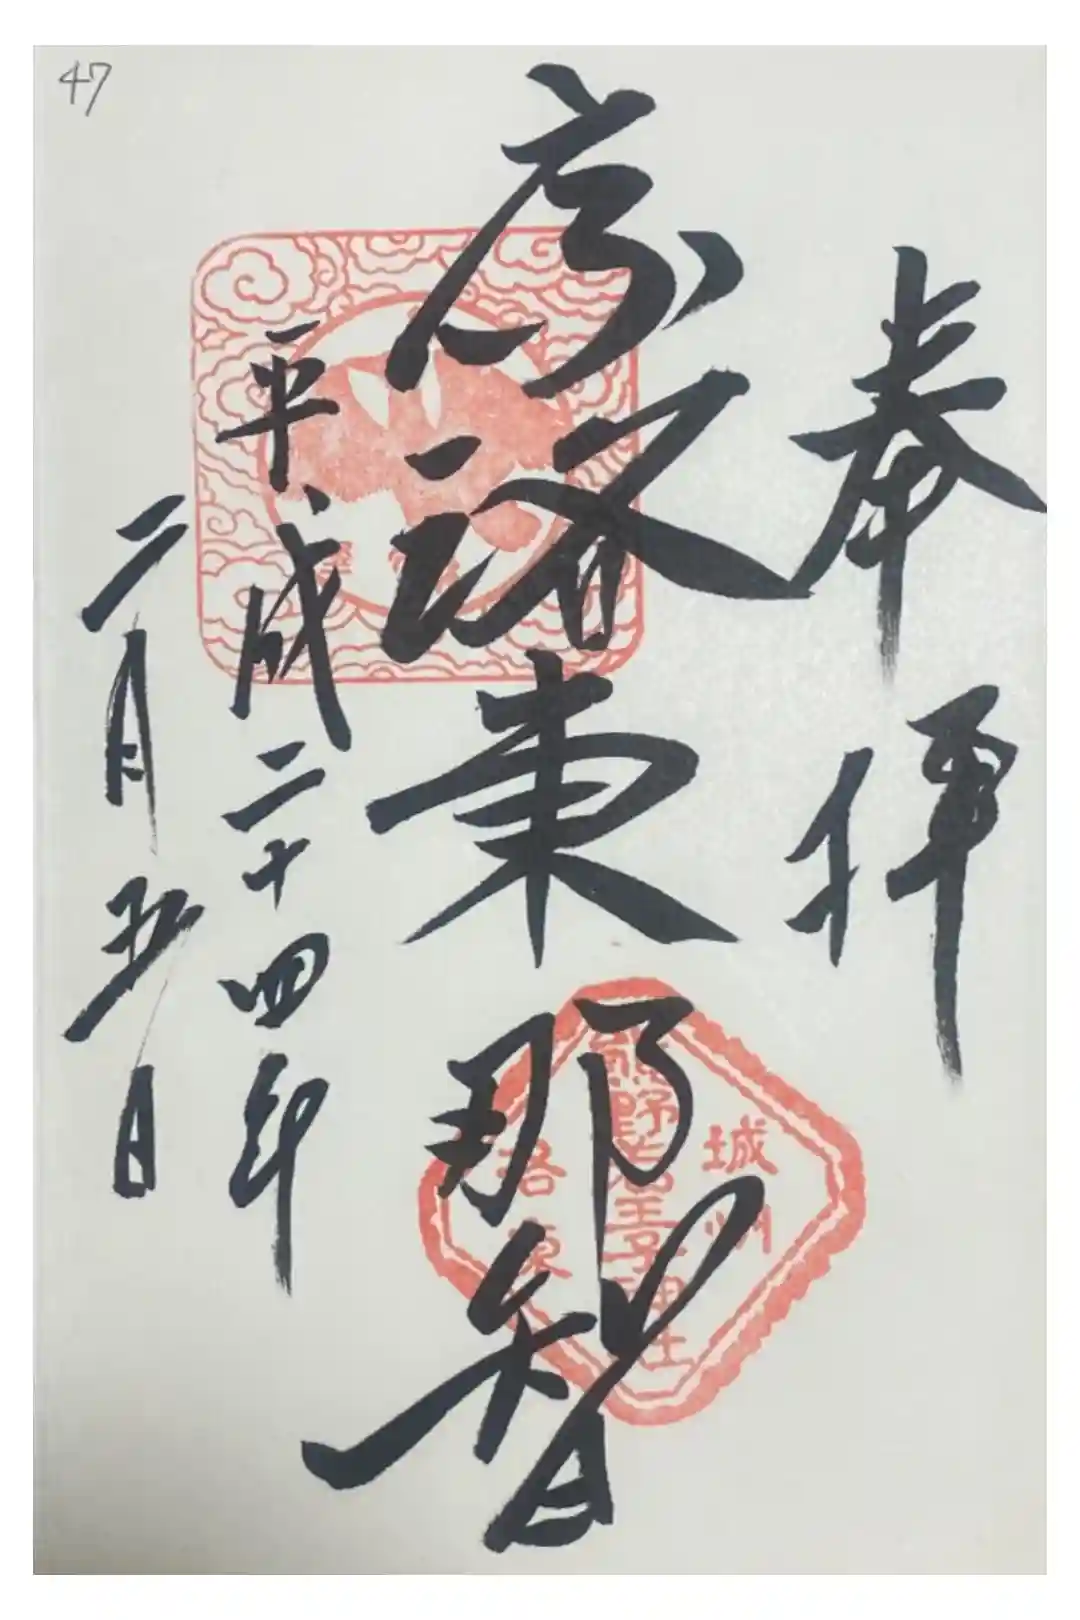 47
奉拝
京洛東那智
城州
熊野若王子神社
洛東
平成二十四年
二月五日